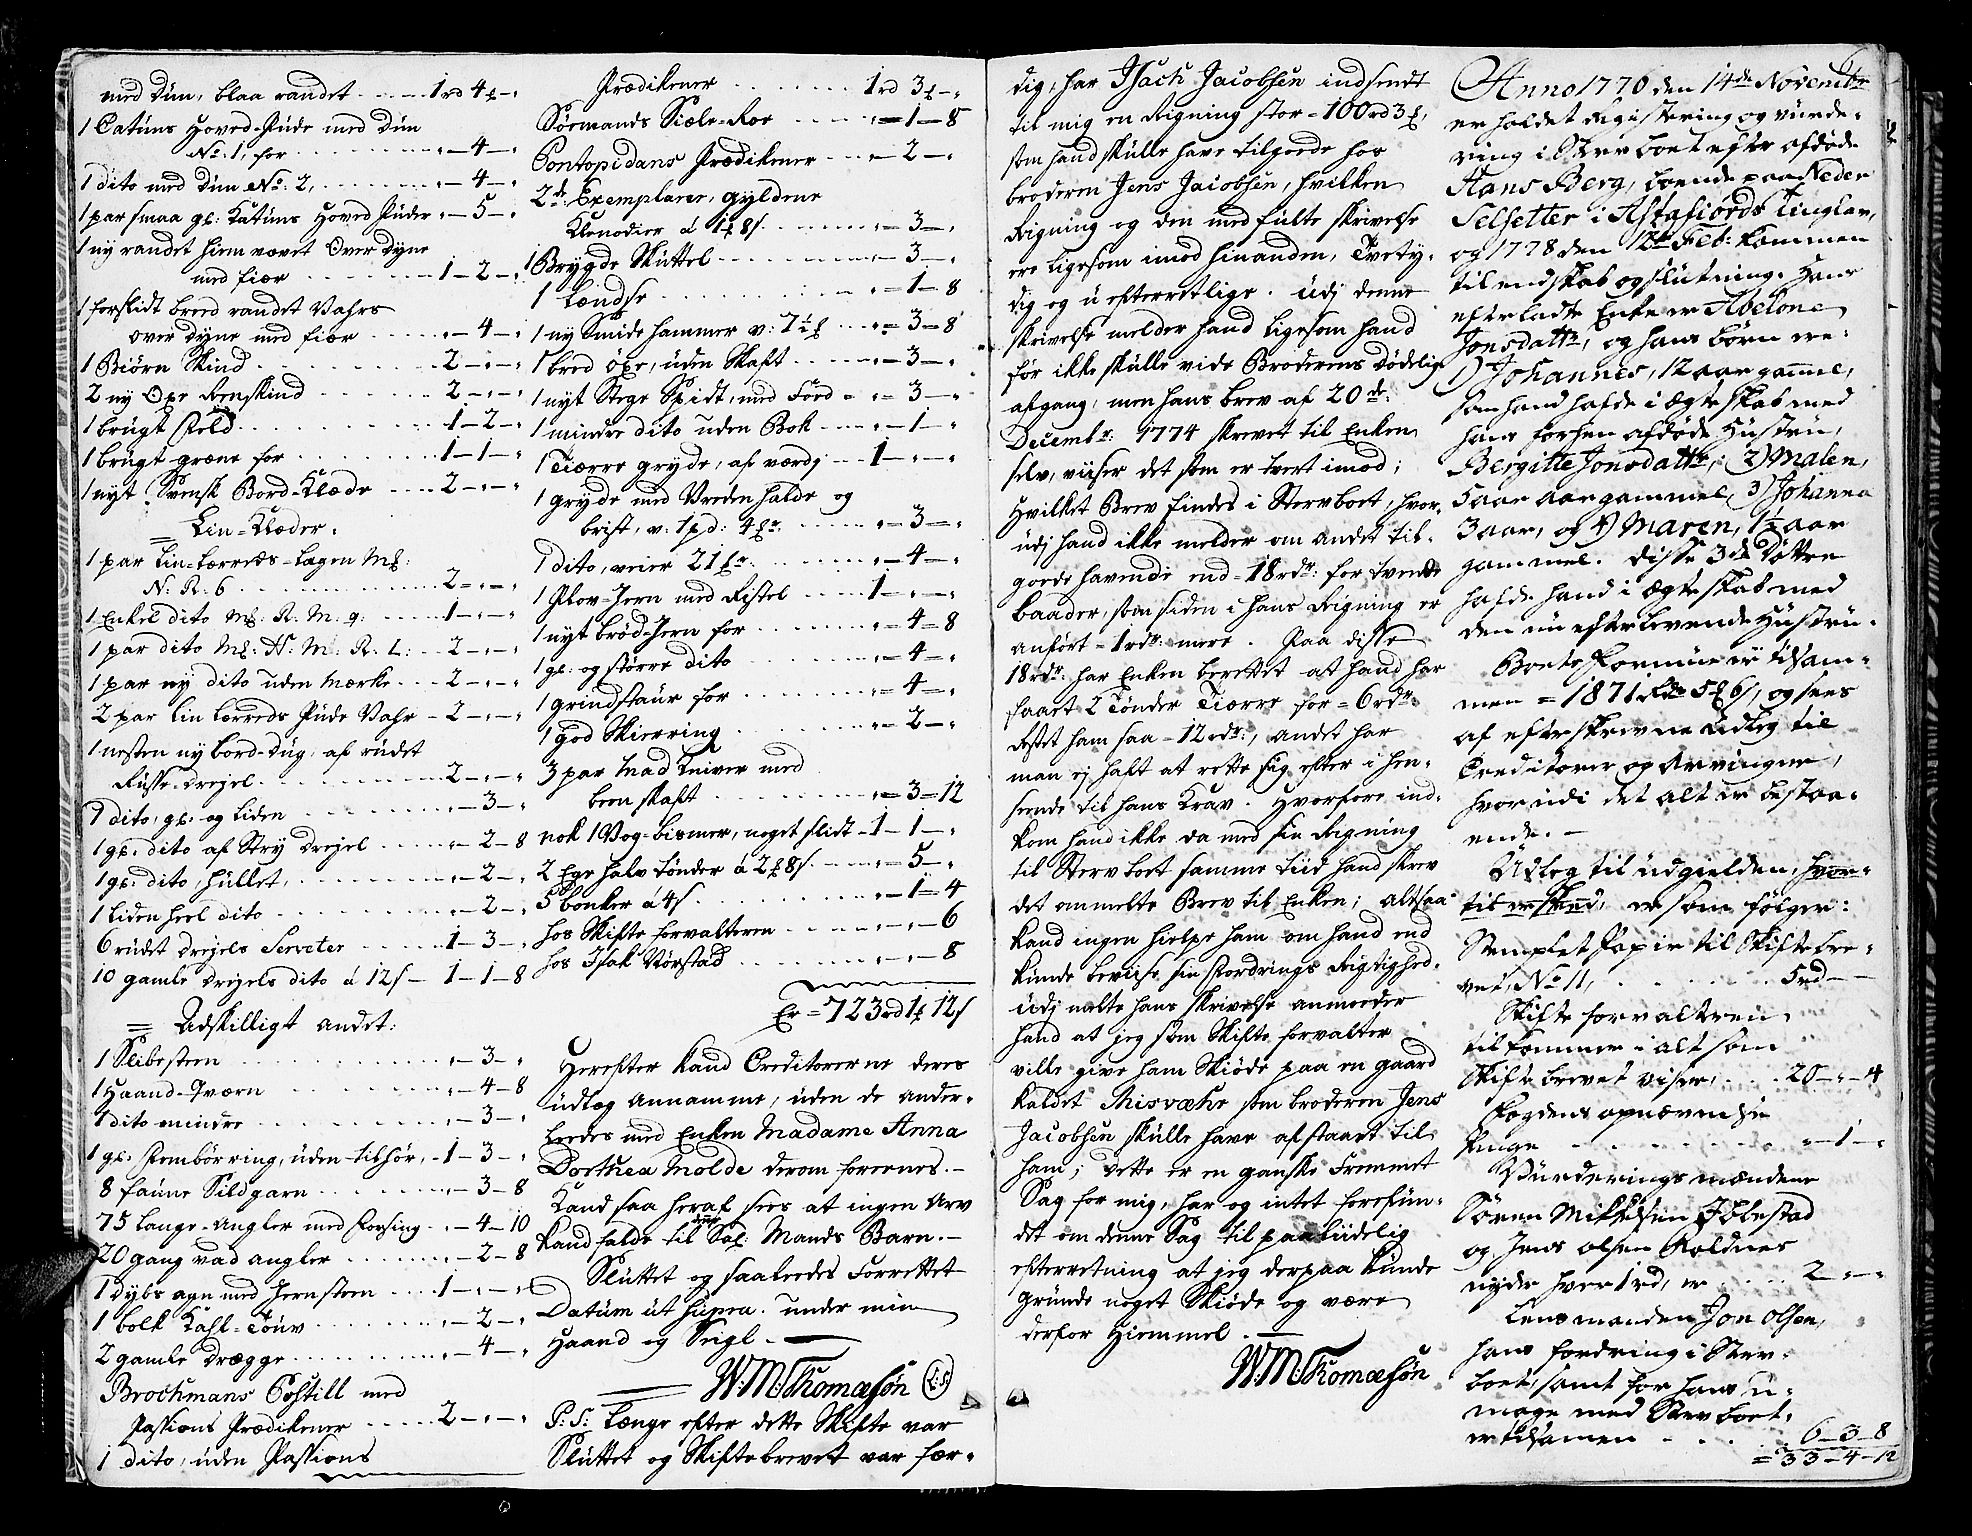 med Dun, blaa randet ..... 1rd 4ƒ - "
1 Catuns Hoved-Pude med Dun
No: 1, for ........ " - 4 - "
1 dito med Dun No: 2, ........ " - 4 - "
1 par smaa gl: Katuns Hoved Puder " - 5 - "
1 ny randet hiem vævet Over Dyne
med fiær ........ 1 - 2 - "
1 forslidt breed randet Vahrs
over dyne med fiær ..... " - 4 - "
1 Biørn Skind ........ 2 - " - "
2 ny Oxe Renskind ...... 2 - " - "
1 brugt Feld ........ 1 - 2 - "
1 brugt græne for ........ 1 - 1 - "
1 nyt Svensk Bord-Klæde .... 2 - " - "
= Lin-Klæder.
1 par Lin-Lærreds-Lagen Mƒ:
N. R. 6 ........ 2 - " - "
1 Enkel dito Mƒ: R. M. g: ..... 1 - " - "
1 par dito Mƒ: N: M: R. L: .. 2 - " - "
1 par ny dito uden Mærke ... 2 - " - "
2 par Lin Lærreds Pude Vahr - 2 - " - "
1 nesten ny bord-dug, af rudet
Russe-drejel ........ 2 - " - "
1 dito, gl: og Liden ....... " - 3 - "
1 gl: dito af Stry Drejel ..... " - 2 - 8
1 gl: dito, hullet, ........ " - 2 - "
1 Liden heel dito ........ " - 2 - "
6 rudst drejels Serveter ..... 1 - 3 - "
10 gamle Drejels dito á 12ſ - 1 - 1 - 8
= Udskilligt andet:
1 Slibesteen ........ " - 3 - "
1 Haand-Qværn ........ " - 4 - 8
1 dito mindre ........ " - 3 - "
1 gl: Fembørring, uden tilhør, - 1 - 3 - "
8 faune Sildgarn ........ " - 3 - 8
75 Lange-Angler med Forsing . " - 4 - 10
20 gang vad angler ........ " - 2 - 8
1 dybs agn med Jernsteen .... 1 - " - "
1 bolk Kahl-Touv ........ " - 2 - "
2 gamle Drægge ........ " - 4 - "
Brochmans Postill med
Passions Prædikener ..... 2 - " - "
1 dito, uden Passions
Prædikener ........ 1rd 3ƒ - "
Sørmands Siæle-Roe ..... " - 1 - 8
Pontopidans Prædikener ... " - 2 - "
2de Exemplarer, gyldene
Klenodier á 1ƒ 8ſ ........ " - 3 - "
1 Brygde Skuttel ........ " - 3 - "
1 Lændse ........ " - 1 - 8
1 ny Smide hammer v: 7½ ƒ ... " - 3 - 8
1 bred Öxe, uden Skaft ..... " - 3 - "
1 nyt Stege Spidt, med Foed - " - 3 - "
1 mindre dito uden Bok .... " - 1 - "
1 Tiærre gryde, af værdj .. 1 - " - "
1 gryde med Vreden halde og
brist, v: 1pd: 4ƒr: ...... " - 3 - "
1 dito, veier 21ƒr ........ " - 4 - "
1 Plov-Jern med Ristel ..... 1 - " - "
1 nyt brød-Jern for ....... " - 4 - 8
1 gl: og større dito ....... " - 4 - "
1 grindstaur for ........ " - 4 - "
1 god Skierring ........ " - 2 - "
3 par Mad Kniver med
been skaft ........ " - 3 - 12
nok 1 Vog-bismer, noget slidt - 1 - 1 - "
2 Ege halv tønder á 2ƒ 8ſ .... " - 5 - "
5 bønker á 4ſ ........ " - 1 - 4
hos Skifte forvalteren ..... " - " - 6
hos Isak Nørstad ........ " - " - 8
Er = 723rd 1ƒ 12ſ
Herefter kand Creditorerne deres
udlæg annamme, uden de ander-
ledes med Enken Madame Anna
Dorthea Molde derom foreenes. -
Kand saa heraf sees at ingen Arv
kand falde til Sal: Mands Barn. -
Sluttet og saaledes Forrettet
Datum ut supra. under min
Haand og Seigl. -
W: M: Thomæsøn (L.S.)
P: S: Længe efter dette Skifte var
Sluttet og Skiftebrevet var fær-
dig, har Isach Jacobsen indsendt
til mig en Rigning stor = 100rd 3ƒ,
som hand skulle have tilgode hos
broderen Jens Jacobsen, hvilken
Rigning og den med fulte skrivelse
ere ligesom imod hinanden, Tvety-
dig og u efterretlige. Udj denne
skrivelse melder hand ligesom hand
før ikke skulle vide Broderens dødelige
afgang, men hans brev af 20de
Decembr: 1774 skrevet til Enken
selv, viiser det som er tvert imod;
Hvilket Brev findes i Stervboet, hvor-
udj hand ikke melder om andet til-
gode havende end = 18rdr: for tvende
baader, som siden i hans Rigning er
anført = 1rdr: mere. Paa disse
18rdr: har Enken berettet at hand har
faaet 2 Tønder Tiærre for = 6rdr:
Restet ham saa = 12rdr:, andet har
man ej haft at rette sig efter i hen-
seende til hans Krav. Hvorfore ind-
kom hand ikke da med sin Rigning
til Stervboet samme tiid hand skrev
det ommelte Brev til Enken; altsaa
kand ingen hielpe ham om hand end
kunde beviise sin Fordrings Rigtighed.
Udj melte hans skrivelse anmoder
hand at jeg som Skifte forvalter
ville give ham Skiøde paa en gaard
kaldet Misvæhr som broderen Jens
Jacobsen skulle have afstaaet til
ham; dette er en ganske fremmet
Sag for mig, har og intet forefun-
det om denne Sag til paaliidelig
efterretning at jeg derpaa kunde
grunde noget Skiøde og være
derfor Hiemmel. -
W: M: Thomæsøn
Anno 1770 den 14de Novembr
er holdet Registering og vurde-
ring i Stervboet efter afdøde
Hans Berg, boende paa Neder
Selsetter i Astafiords Tinglav,
og 1778 den 12te Feb: kommen
til endskab og slutning. Hans
efterladte Enke er Abelone
Jonsdattr, og hans børn ere:
1) Johannes, 12 aar gamme,
som hand hafde i ægteskab med
hans forhen afdøde Hustru,
Bergitte Jonsdattr, 2) Malen,
5 aar aar gammel, 3) Johanna
3 aar, og 4) Maren, 1½ aar
gammel. Disse 3de Døttre
hafde hand i ægteskab med
den nu efterlevende Hustru.
Boets Formue er tilsam-
men = 1871 Rdr 5ƒ 6ſ, og sees
af efterskrevne Udlæg til
Creditorer og Arvingene,
hvor udi det alt er bestaa-
ende. -
Udlæg til udgielden, hvor-
til er skeed, er som følger:
Stemplet Papir til Skiftebre-
vet, No 11, ........ 5rd - -
Skifte forvalteren
tilkommer i alt som
Skiftebrevet viser, .... 20 - " - 4
Fogdens opnævnelse
Penge ........ " - 1 - "
Vurderings mændene
Søren Mikkelsen Ibbestad
og Jens Olsen Roldnes
nyder hver 1rd, er .... 2 - " - "
Lensmanden Jon Olsen,
hans fordring i Sterv-
boet, samt for hans u-
mage med Stervboet,
er tilsamen ........ 6 - 3 - 8
= 33 - 4 - 12